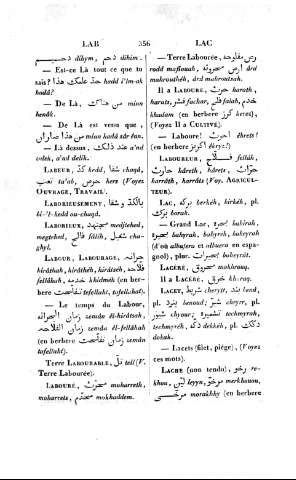 LAB 356 LAC
دحيم dihym, دحم dihim.
— Est-ce Là tout ce que tu
sais? هذا ما عندك hadd
hadd?
— De Là, من هناك min
henâk.
— De Là est venu que,
من هذا صاران min hadd sâr-ean.
— Là dessus, عند ذلك a'nd
zelek, a'nd delik.
LABEUR, كد kedd, شقا chaqd,
تعب ta'ab, حرص hers (Voyez
OUVRAGE, TRAVAIL.)
LABORIEUSEMENT, بالكد و شقا
bi-'l-kedd ou-chaqd.
LABORIEUX, مجتهد medjtehed,
megtehed, فالح fâlih, شغيل cha-
ghyl.
LABOUR, LABOURAGE, حراثة
hirâthah, hirâthéh, hirâtéh, فلاحة
felâhah, خدمة khidméh (en ber-
bere تفلاحت tefellaht).
— Le temps du Labour,
زمان الحراثة zemân êl-hirâtséh,
زمان الفلاحة zemân êl-felâhah
(en berbere زمان تفلاحت zemân
tefellaht).
Terre LABOURABLE, تل tell (V.
Terre Labourée).
LABOURÉ, محروث mahrroth,
maharrets, مخدم mokhaddem.
— Terre Labourée, ارض مفلوحة
rodd maflouah, ارض محروثة ârd
mahrouthéh, ârd mahroutsah.
Il a LABOURÉ, حرث harath,
harats, فشر fachar, فلح falah, خدم
khadam (en berbere كرز kerez),
(Voyez Il a CULTIVÉ).
— Laboure! احرث êhrets!
(en berbere اكرز
LABOUREUR, فلاح fellâh,
حارث hâreth, hârets, حراث
harrâth, harrâts (Voy. AGRICUL-
TEUR.)
LAC, بركة berkéh, birkéh, pl.
برك borak.
— Grand Lac, بحيرة bahirah,
bahyrah, bahyréh, baheyrah
(d'où albufera et albuera en espa-
gnol), plur. بحيرات bahyrât.
LACÉRÉ, مخروق makhrouq.
Il a LACÉRÉ, خرق kharaq.
LACET, شريط cheryt, بند bend,
pl. بنود benoud; شير chyr, pl.
شيور chyour; تشميرة techmyrah,
techmyréh, دكة dekkéh, pl. دكك
dekak.
— Lacets (filet, piége), (Voyez
ces mots).
LACHE (non tendu), رخو re-
khou, لين leyyn, مرخو merkhouou,
مرخي morakhhy (en berbere